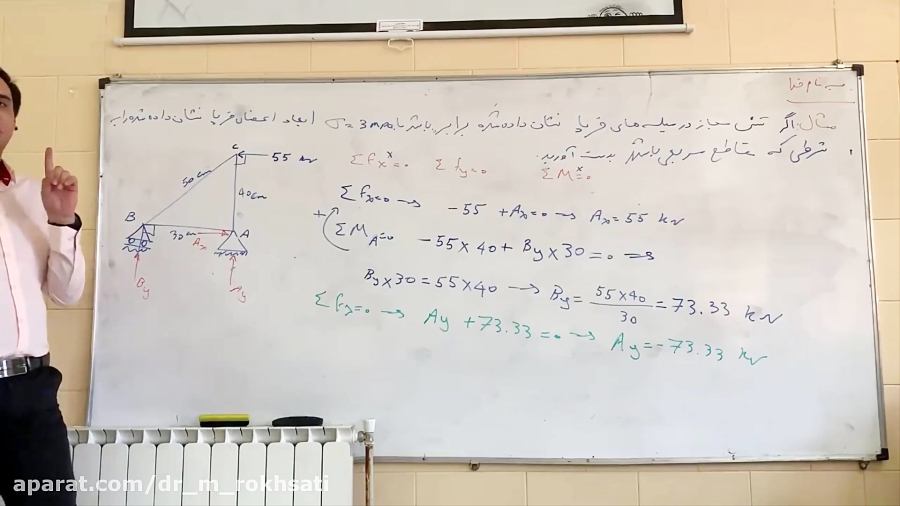 به نام خدا
مثال: اگر تنش مجاز در میله های خرپا نشان داده شده برابر باشد با σ = 3 mpa ابعاد اعضای خرپا نشان داده شده را به
شرطی که مقاطع مربعی باشند بدست آورید.
C
55 kN
50 cm
40 cm
B
30 cm
A
Ax
By
Ay
Σfx=0 Σfy=0 ΣM=0
Σfx=0 → -55 + Ax=0 → Ax=55 kN
+ ΣMA=0 -55×40+By×30=0 ⇒
By×30=55×40 → By=55×40/30=73.33 kN
Σfy=0 → Ay+73.33=0 → Ay=-73.33 kN
aparat.com/dr_m_rokhsati